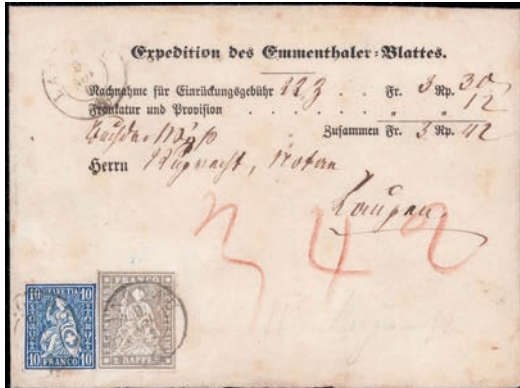 Expedition des Emmenthaler-Blattes.
Nachnahme für Einrückungsgebühr 22 Z . . Fr. 3 Rp. 30
Frankatur und Provision . . . . . . . „ „ 12
Zusammen Fr. 3 Rp. 42
Herrn Ruprecht, Notar
Laupen
342
10 HELVETIA 10
10 FRANCO 10
FRANCO
2 RAPPEN